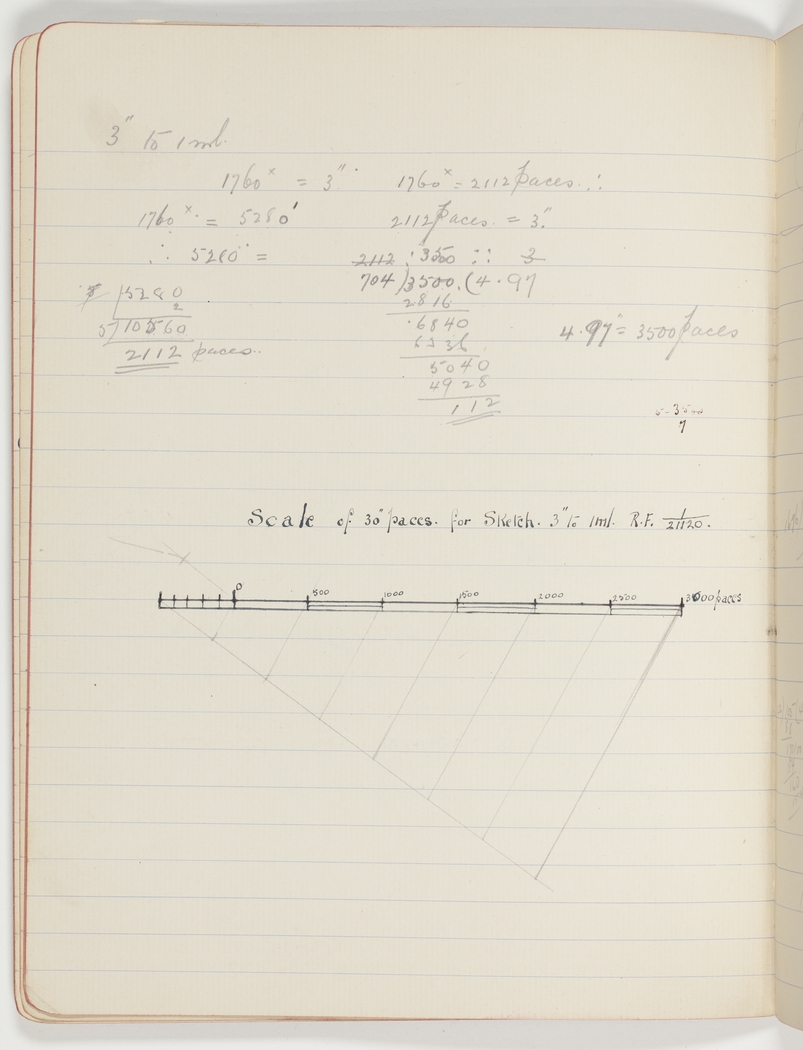 3" to 1 ml.
1760ˣ = 3"
1760ˣ = 2112 paces ∴
1760ˣ = 5280'
2112 paces = 3"
∴ 5280' =
2112 : 3500 :: 3
704)3500.(4.97
2816
6840
6336
5040
4928
112
5280
2
5)10560
2112 paces.
4.97" = 3500 paces
3500
7
Scale of 30" paces. for Sketch. 3" to 1 ml. R.F. 1/21120.
0 500 1000 1500 2000 2500 3000 paces